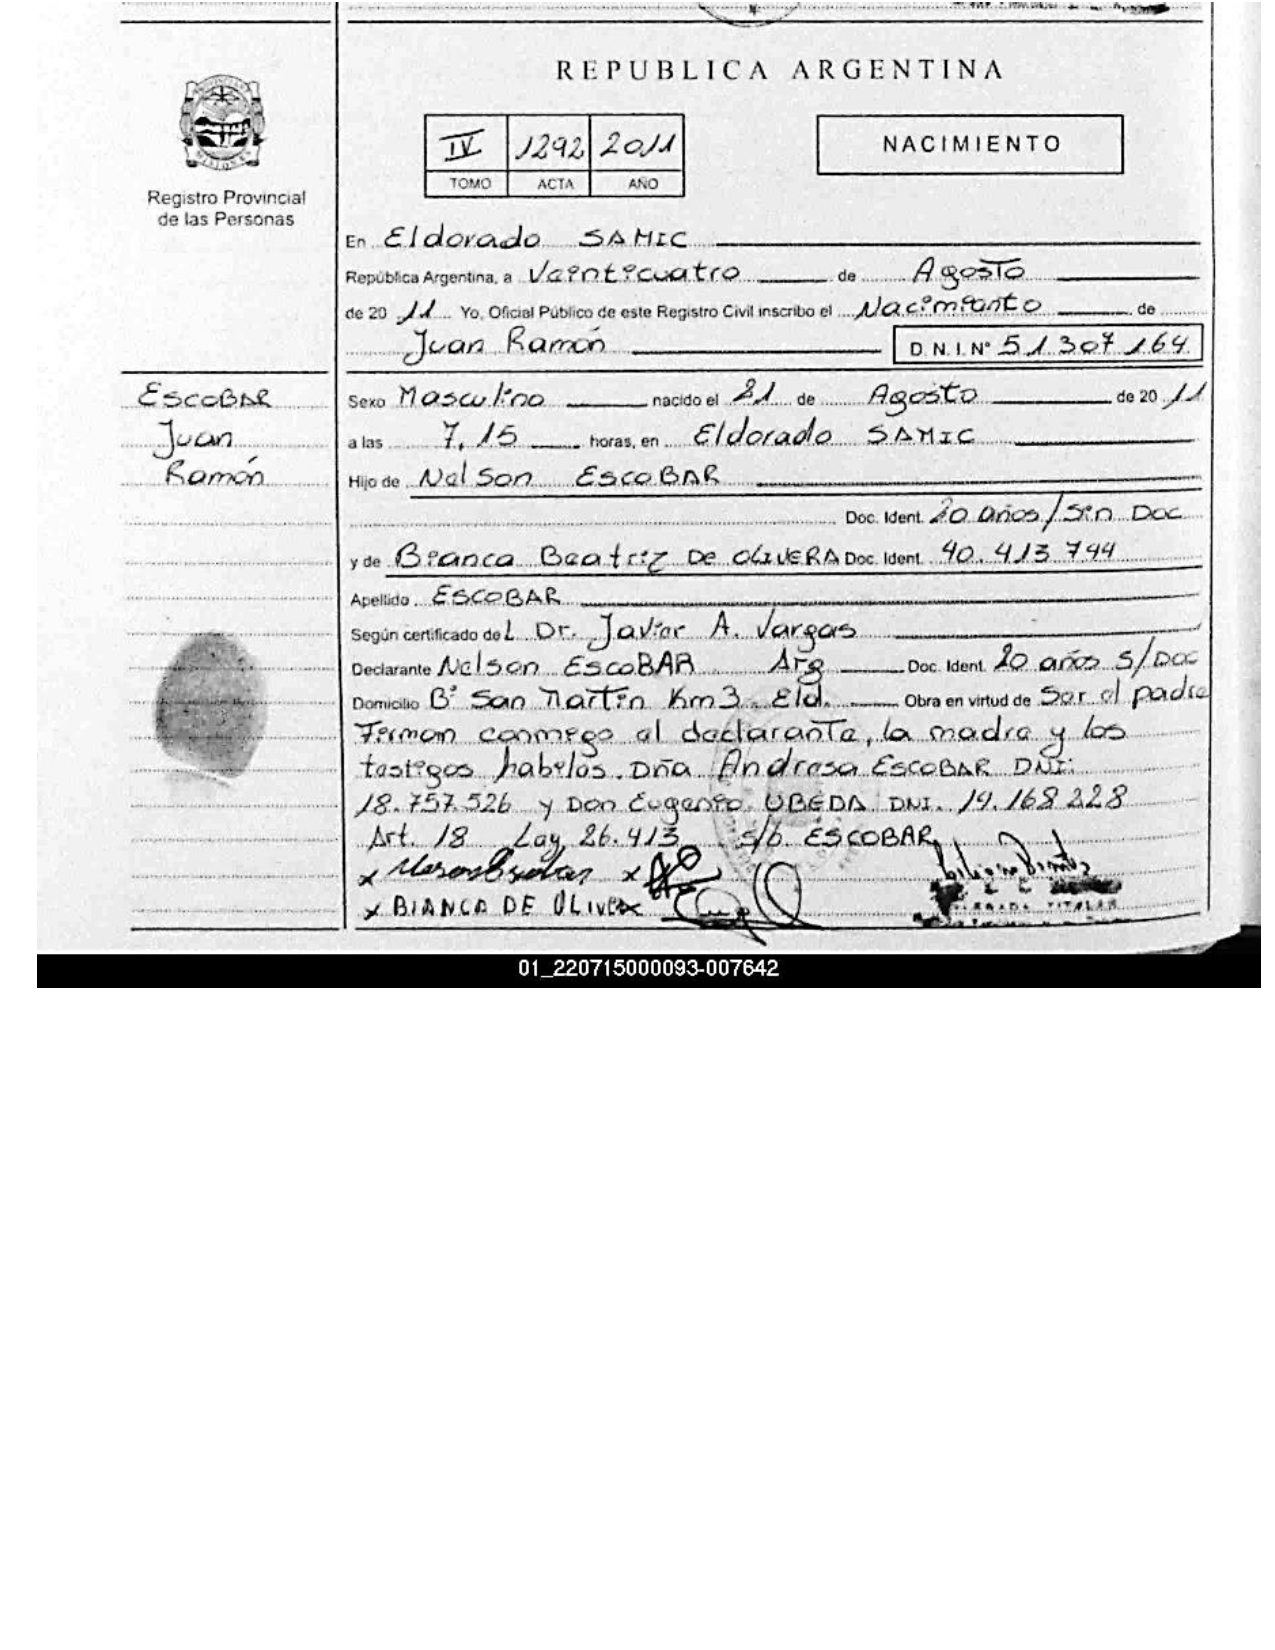 REPUBLICA ARGENTINA
IV 1292 2011
TOMO ACTA AÑO
NACIMIENTO
MISIONES
Registro Provincial
de las Personas
En Eldorado SAMIC
República Argentina, a Veinticuatro de Agosto
de 20 11 Yo, Oficial Público de este Registro Civil inscribo el Nacimiento de
Juan Ramón D.N.I. Nº 51307164
ESCOBAR
Juan
Ramón
Sexo Masculino nacido el 21 de Agosto de 20 11
a las 7,15 horas, en Eldorado SAMIC
Hijo de Nelson ESCOBAR
Doc. Ident. 20 años/Sin Doc
y de Bianca Beatriz DE OLIVERA Doc. Ident. 40.413744
Apellido ESCOBAR
Según certificado del Dr. Javier A. Vargas
Declarante Nelson ESCOBAR Arg Doc. Ident. 20 años S/Doc
Domicilio Bº San Martín Km3. Eld. Obra en virtud de Ser el padre
Firman conmigo el declarante, la madre y los
testigos habiles. Dña Andresa ESCOBAR DNI:
18.757.526 y Don Eugenio UBEDA DNI. 14.168228
Art. 18 Ley 26.413 s/b. ESCOBAR
x x
x BIANCA DE OLIVERA
TITULAR
01_220715000093-007642